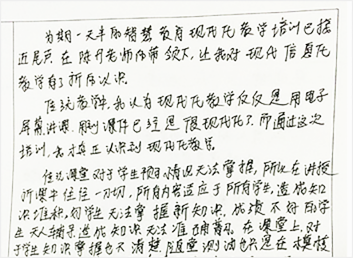 为期一天半的智慧教育现代化教学培训已接
近尾声。在陈丹老师的带领下，让我对现代信息化
教学有了新的认识。
传统教学中，我认为现代化教学仅仅是用电子
屏幕讲课，用到课件已经是很现代化了。而通过这次
培训，我才真正认识到现代化教学。
传统课堂对学生预习情况无法掌握，所以在讲授
新课中往往一刀切，所有内容适应于所有学生，造成知
识堆积，好学生无法掌握新知识，成绩不好的学
生无人辅导造成知识无法准确
于学生知识掌握也不清楚，随堂测试也只是在模棱